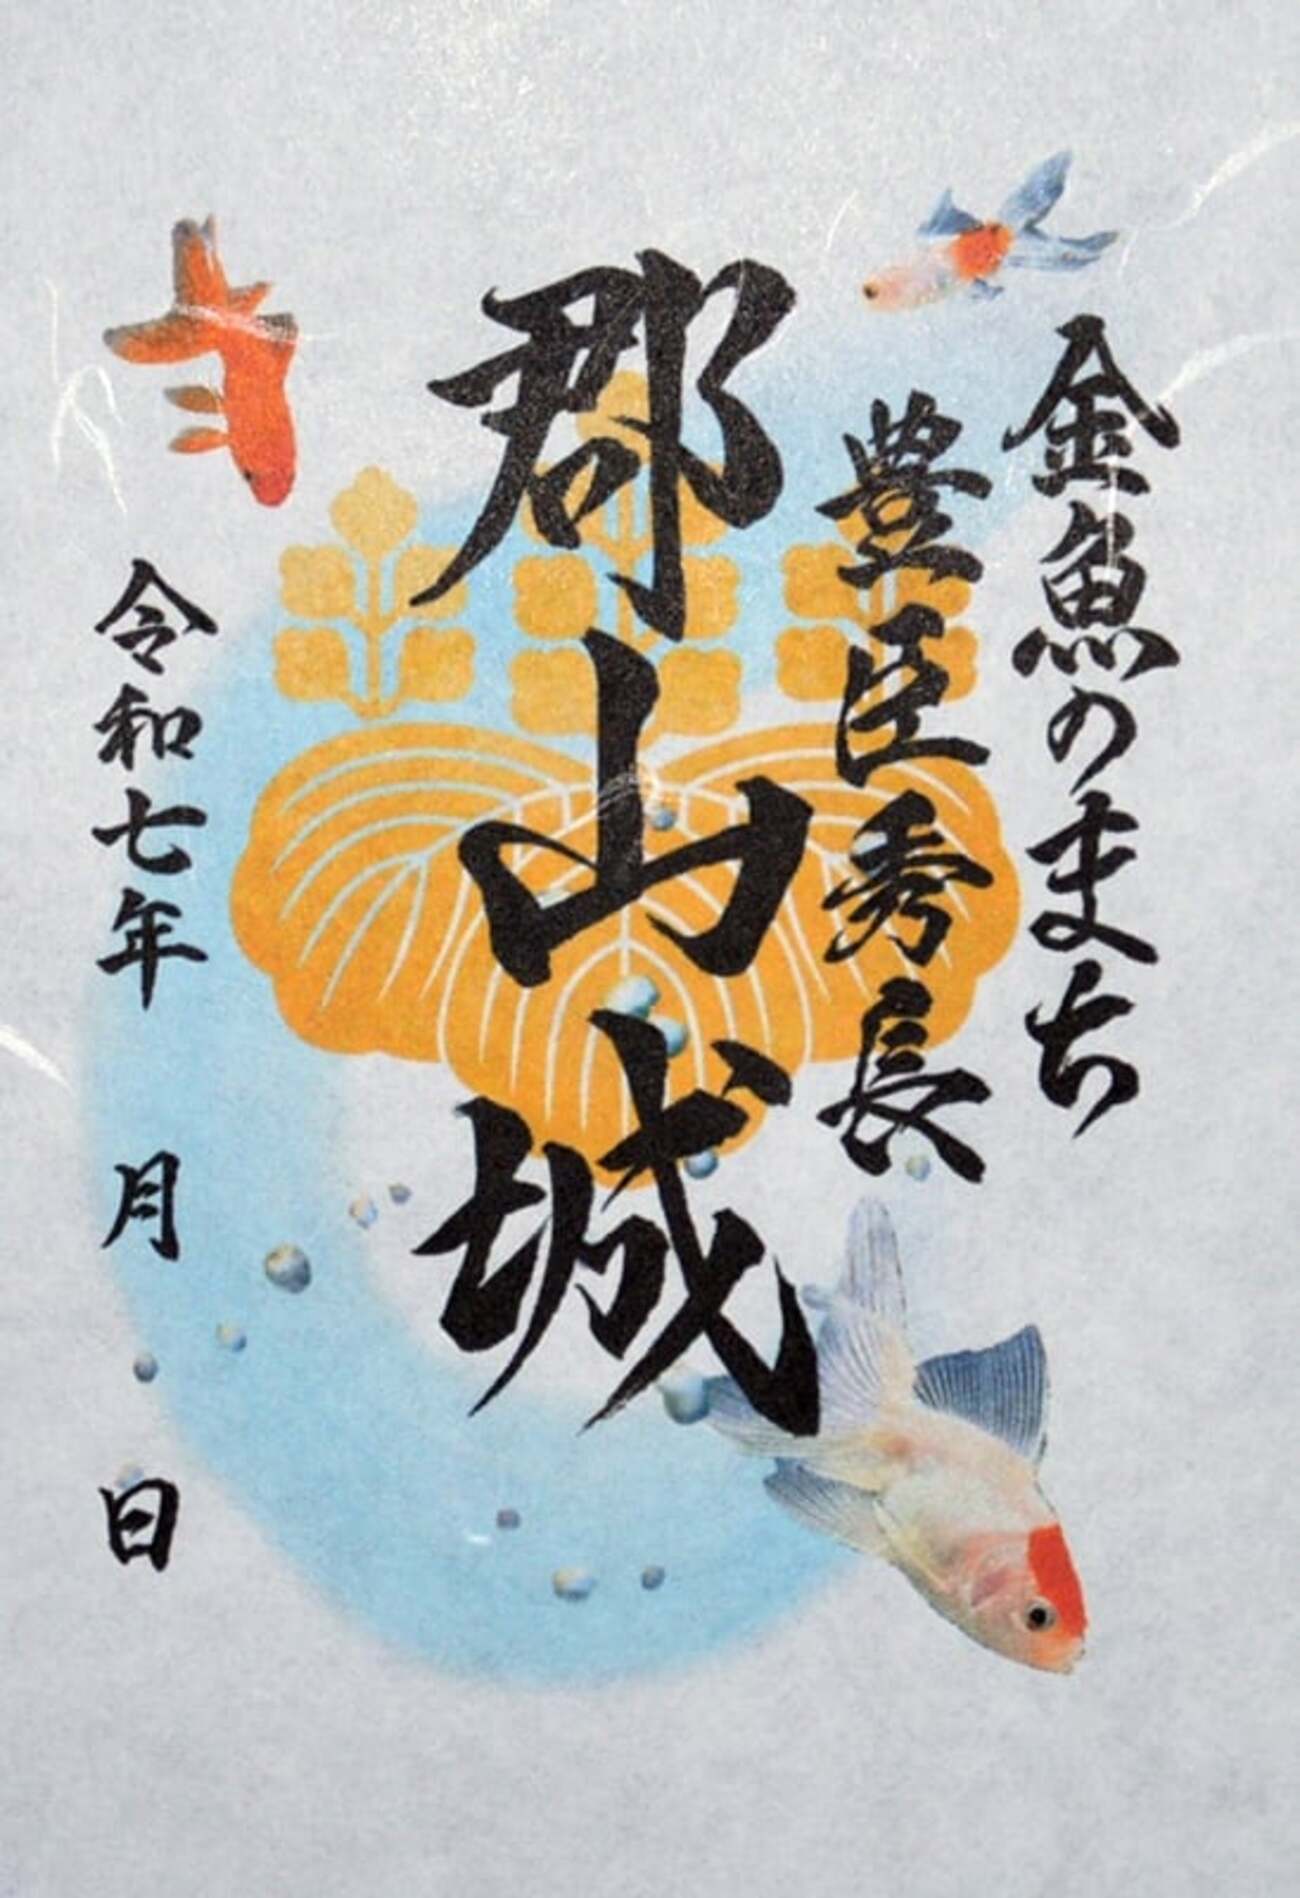 金魚のまち
豊臣秀長
郡山城
令和七年　月　日